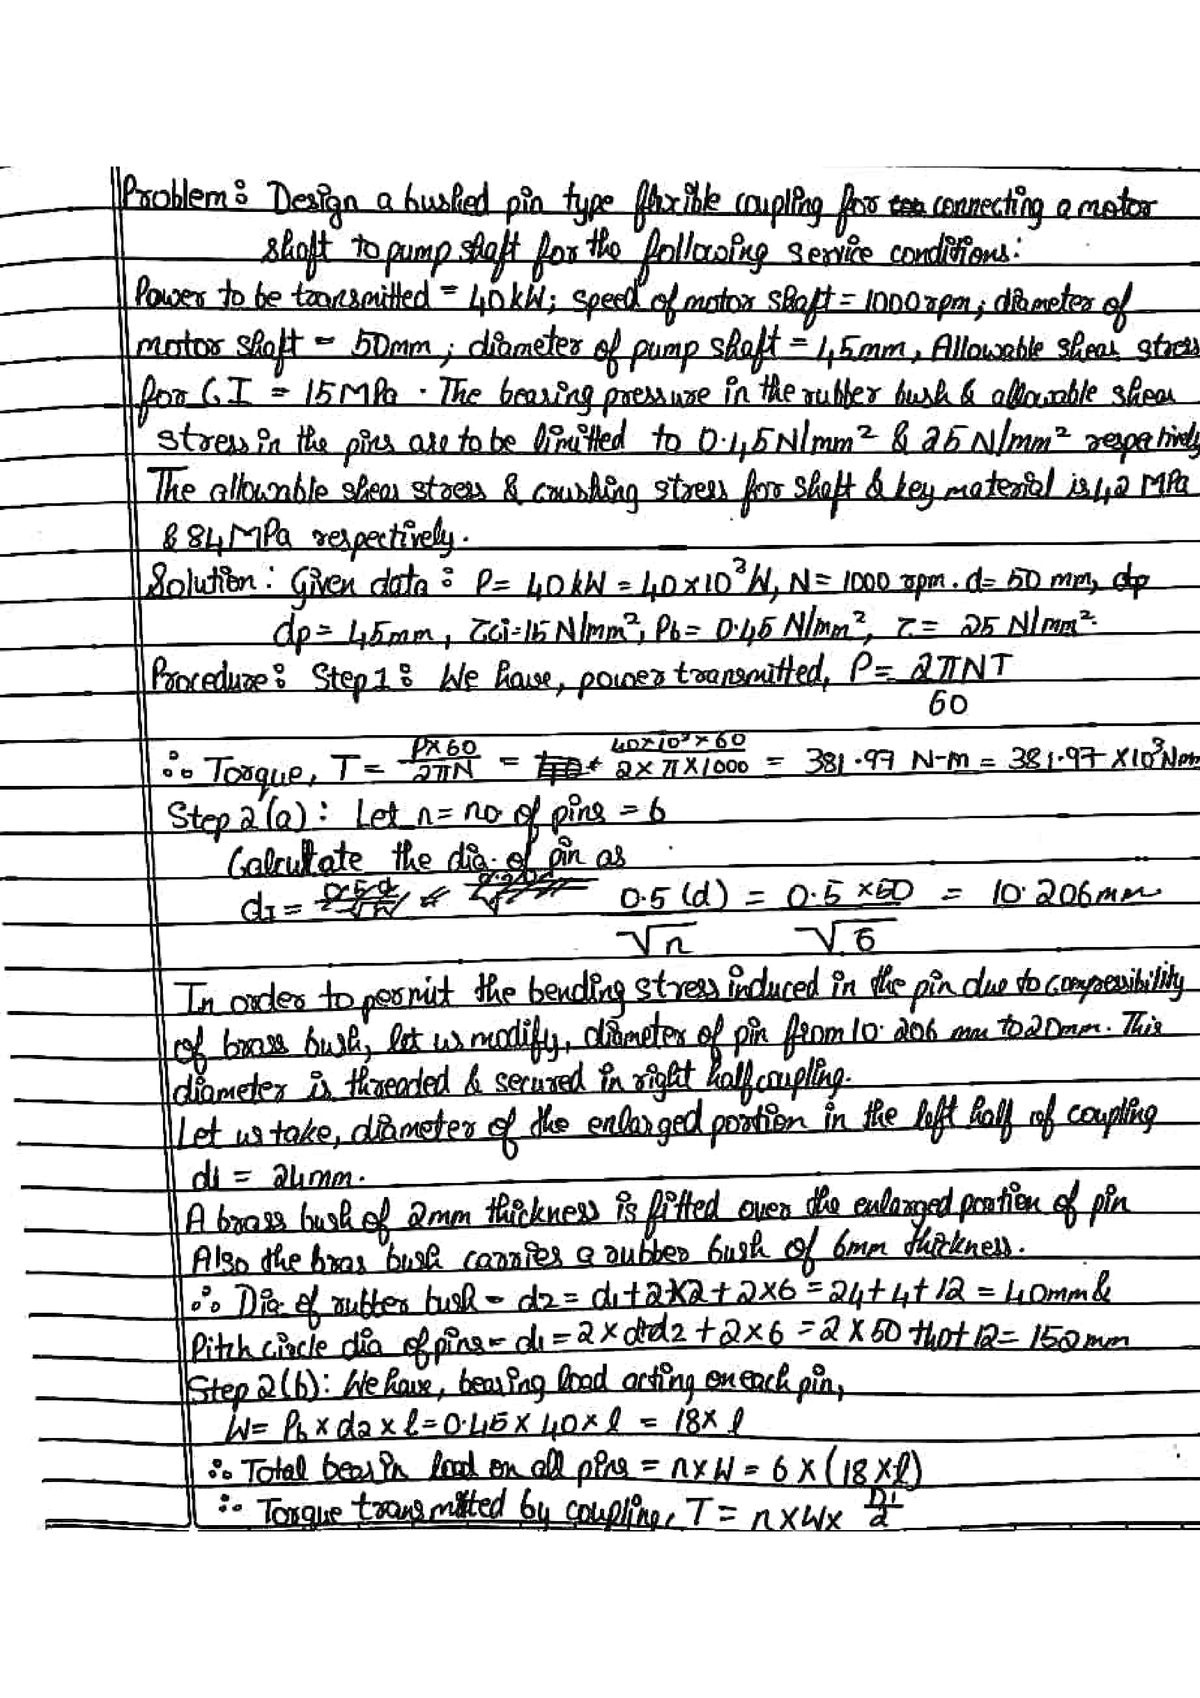 Problem: Design a bushed pin type flexible coupling for connecting a motor
shaft to pump shaft for the following service conditions:
Power to be transmitted = 40kW; speed of motor shaft = 1000 rpm; diameter of
motor shaft = 50mm; diameter of pump shaft = 45mm, Allowable shear stress
for C.I = 15MPa. The bearing pressure in the rubber bush & allowable shear
stress in the pins are to be limitted to 0.45N/mm² & 25N/mm² respectively
The allowable shear stress & crushing stress for shaft & key material is 42 MPa
& 84MPa respectively.
Solution: Given data: P= 40kW = 40×10³W, N= 1000 rpm. d= 50 mm, dp
dp= 45mm, τci=15N/mm², Pb= 0.45 N/mm², τ= 25 N/mm².
Procedure: Step1: We have, power transmitted, P= 2πNT
60
∴ Torque, T= P×60/2πN = 40×10³×60/2×π×1000 = 381.97 N-m = 381.97×10³Nmm
Step 2(a): Let n= no of pins = 6
Calculate the dia. of pin as
dI= 0.5(d) = 0.5×50 = 10.206mm
√n √6
In order to permit the bending stress induced in the pin due to compressibility
of brass bush, let us modify, diameter of pin from 10.206 mm to 20mm. This
diameter is threaded & secured in right half coupling.
Let us take, diameter of the enlarged portion in the left half of coupling
d1 = 24mm.
A brass bush of 2mm thickness is fitted over the enlarged portion of pin
Also the bras bush carries a rubber bush of 6mm thickness.
∴ Dia of rubber bush = d2= d1+2×2+2×6=24+4+12=40mm &
Pitch circle dia of pins = d1=2× d+d2+2×6=2×50 +40+12=152mm
Step 2(b): We have, bearing load acting on each pin,
W= Pb×d2×l=0.45×40×l = 18×l
∴ Total bearin load on all pins = n×W = 6×(18×l)
∴ Torque transmitted by coupling, T= n×W× D1/2